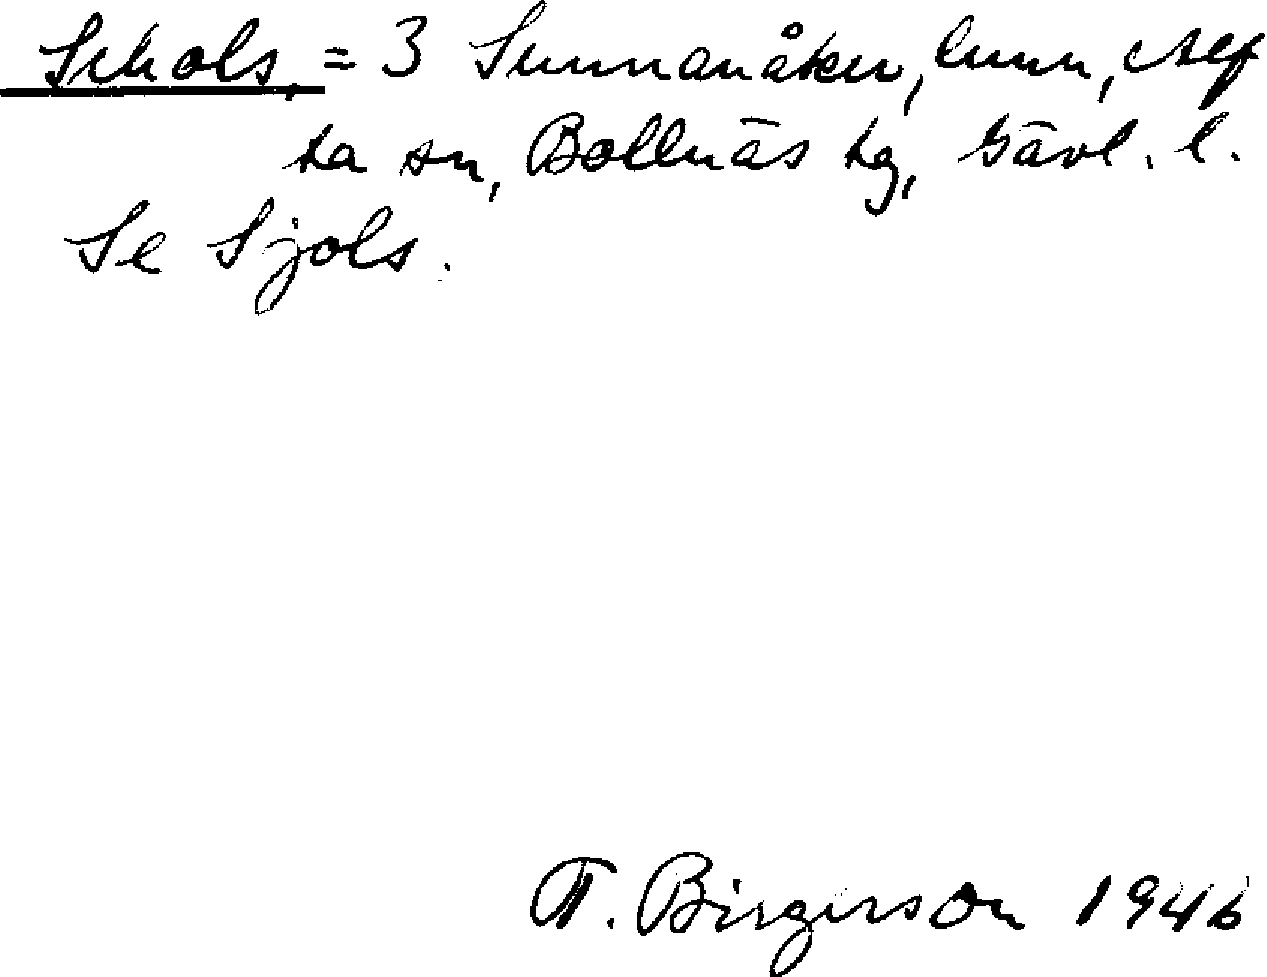 Schols, = 3 Sunnanåker, hmn, Alf
ta sn, Bollnäs tg, Gävl. l.
Se Sjols.
T. Birgerson 1946